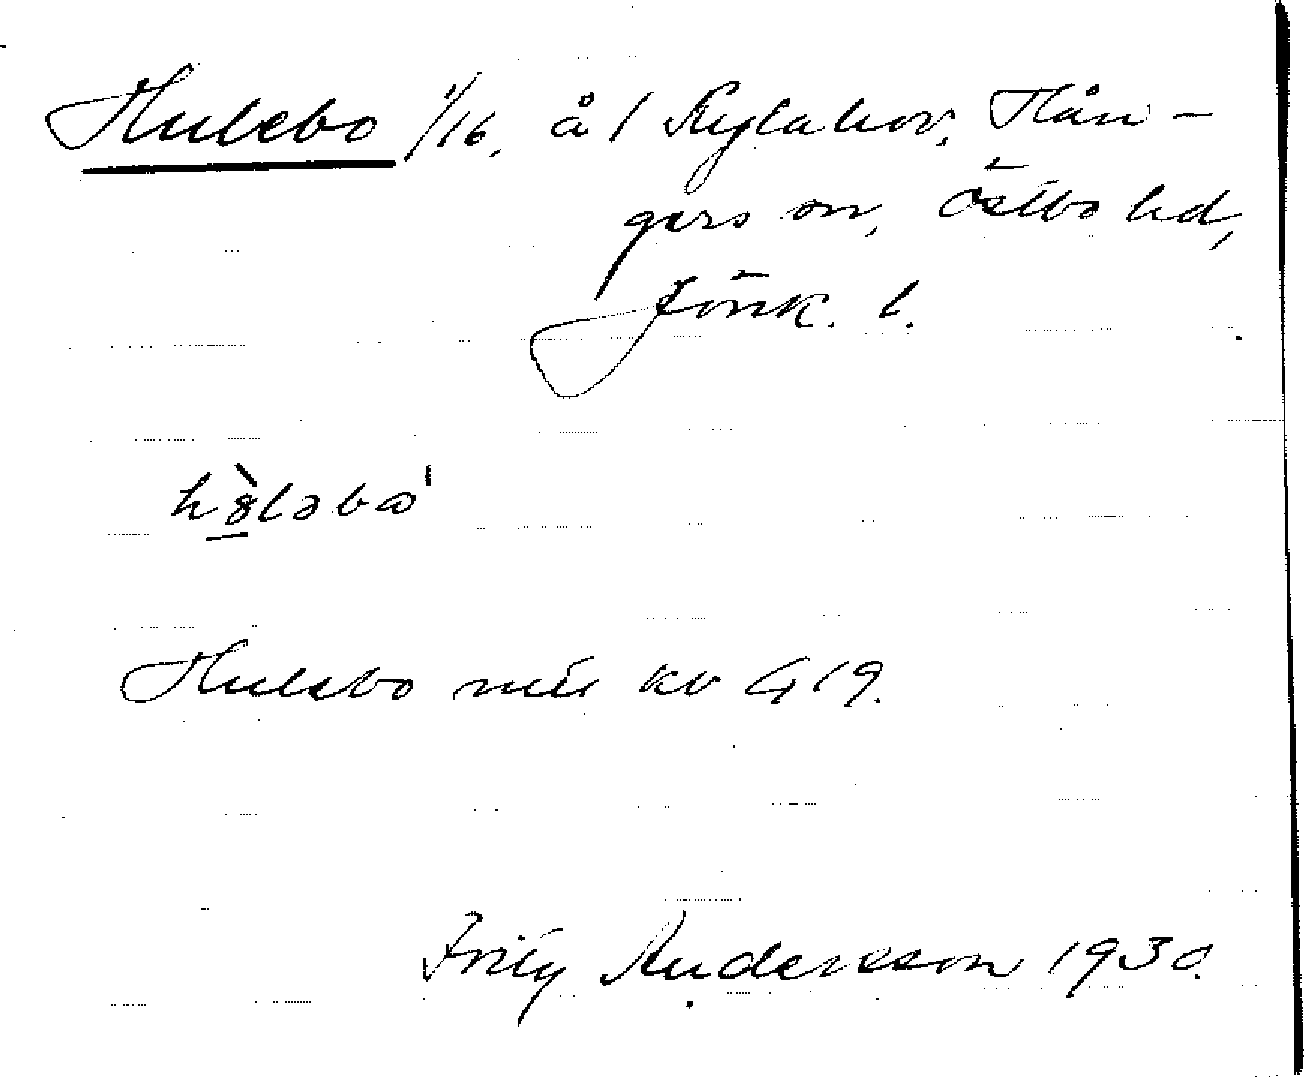 Hulebo 1/16, å 1 Rylahov, Hån-
gers sn, Östbo hd,
Jönk. l.
hùləbω'
Hulebo kv G 19.
Fritz Andersson 1930.